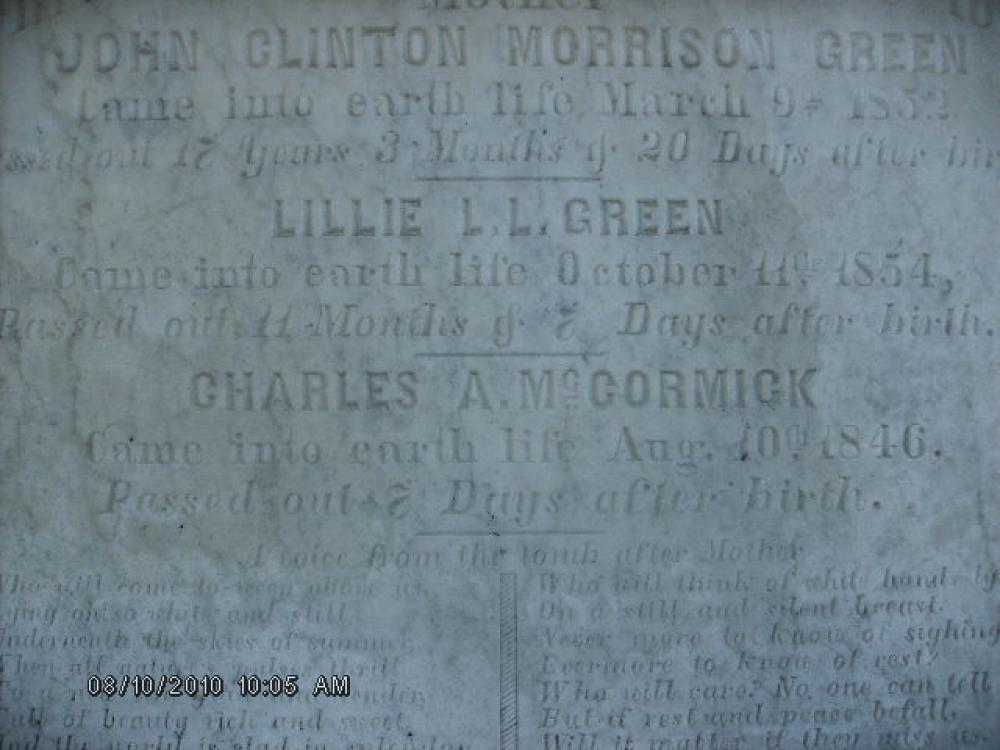 Mother
JOHN CLINTON MORRISON GREEN
Came into earth life March 9th 1852.
ssed out 17 Years 3 Months & 20 Days after bir
LILLIE L. L. GREEN
Came into earth life October 11th 1854,
Passed out 11 Months & 7 Days after birth.
CHARLES A. McCORMICK
Came into earth life Aug. 10th 1846.
Passed out 7 Days after birth.
A voice from the tomb after Mother
Who will come to weep above us,
Lying oh so white and still
Underneath the skies of summer,
Then all nature's pulses thrill
To a n
Full of beauty rich and sweet,
and the world is clad in splendor
Who will think of white hands ly
On a still and silent breast.
Never more to know of sighing
Evermore to know of rest?
Who will care? No one can tell
But if rest and peace befall,
Will it matter if they miss us
08/10/2010 10:05 AM